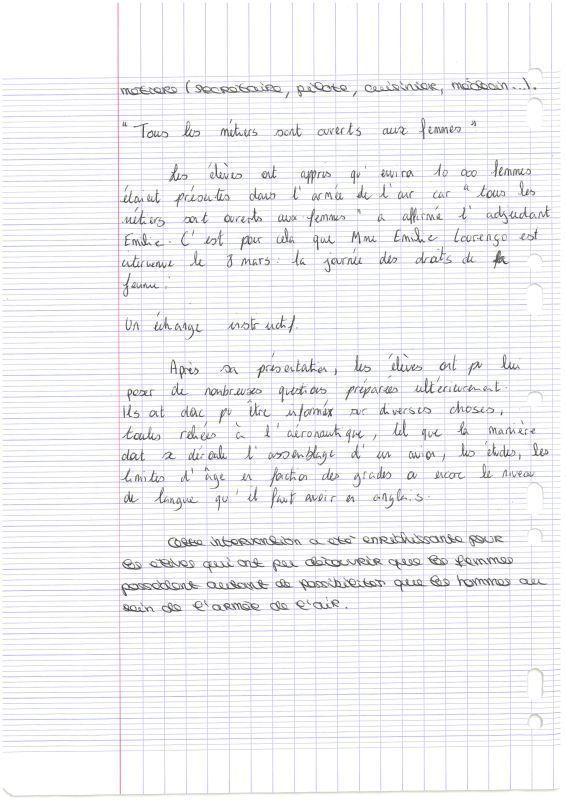 métiers (secrétaire, pilote, cuisinier, médecin...).
"Tous les métiers sont ouverts aux femmes"
Les élèves ont appris qu'environ 10 000 femmes
étaient présentes dans l'armée de l'air car "tous les
métiers sont ouverts aux femmes" a affirmé l'adjudant
Emilie. C'est pour cela que Mme Emilie Lourenço est
intervenue le 8 mars : la journée des droits de la
femme.
Un échange instructif.
Après sa présentation, les élèves ont pu lui
poser de nombreuses questions préparées ultérieurement.
Ils ont donc pu être informés sur diverses choses,
toutes reliées à l'aéronautique, tel que la manière
dont se déroule l'assemblage d'un avion, les études, les
limites d'âge en fonction des grades ou encore le niveau
de langue qu'il faut avoir en anglais.
Cette intervention a été enrichissante pour
les élèves qui ont pu découvrir que les femmes
possèdent autant de possibilités que les hommes au
sein de l'armée de l'air.